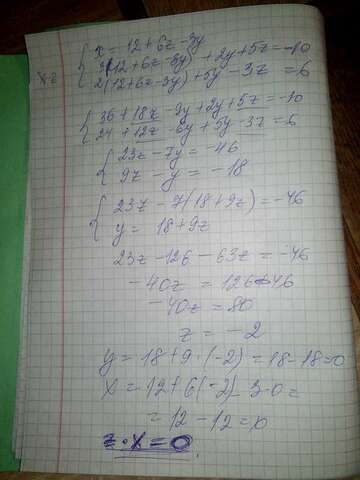 x = 12 + 6z - 3y
x·z
3(12 + 6z - 3y) + 2y + 5z = -10
2(12 + 6z - 3y) + 5y - 3z = 6
36 + 18z - 9y + 2y + 5z = -10
24 + 12z - 6y + 5y - 3z = 6
23z - 7y = -46
9z - y = -18
23z - 7(18 + 9z) = -46
y = 18 + 9z
23z - 126 - 63z = -46
-40z = 126 - 46
-40z = 80
z = -2
y = 18 + 9·(-2) = 18 - 18 = 0
x = 12 + 6(-2) - 3·0 =
= 12 - 12 = 0
z·x = 0